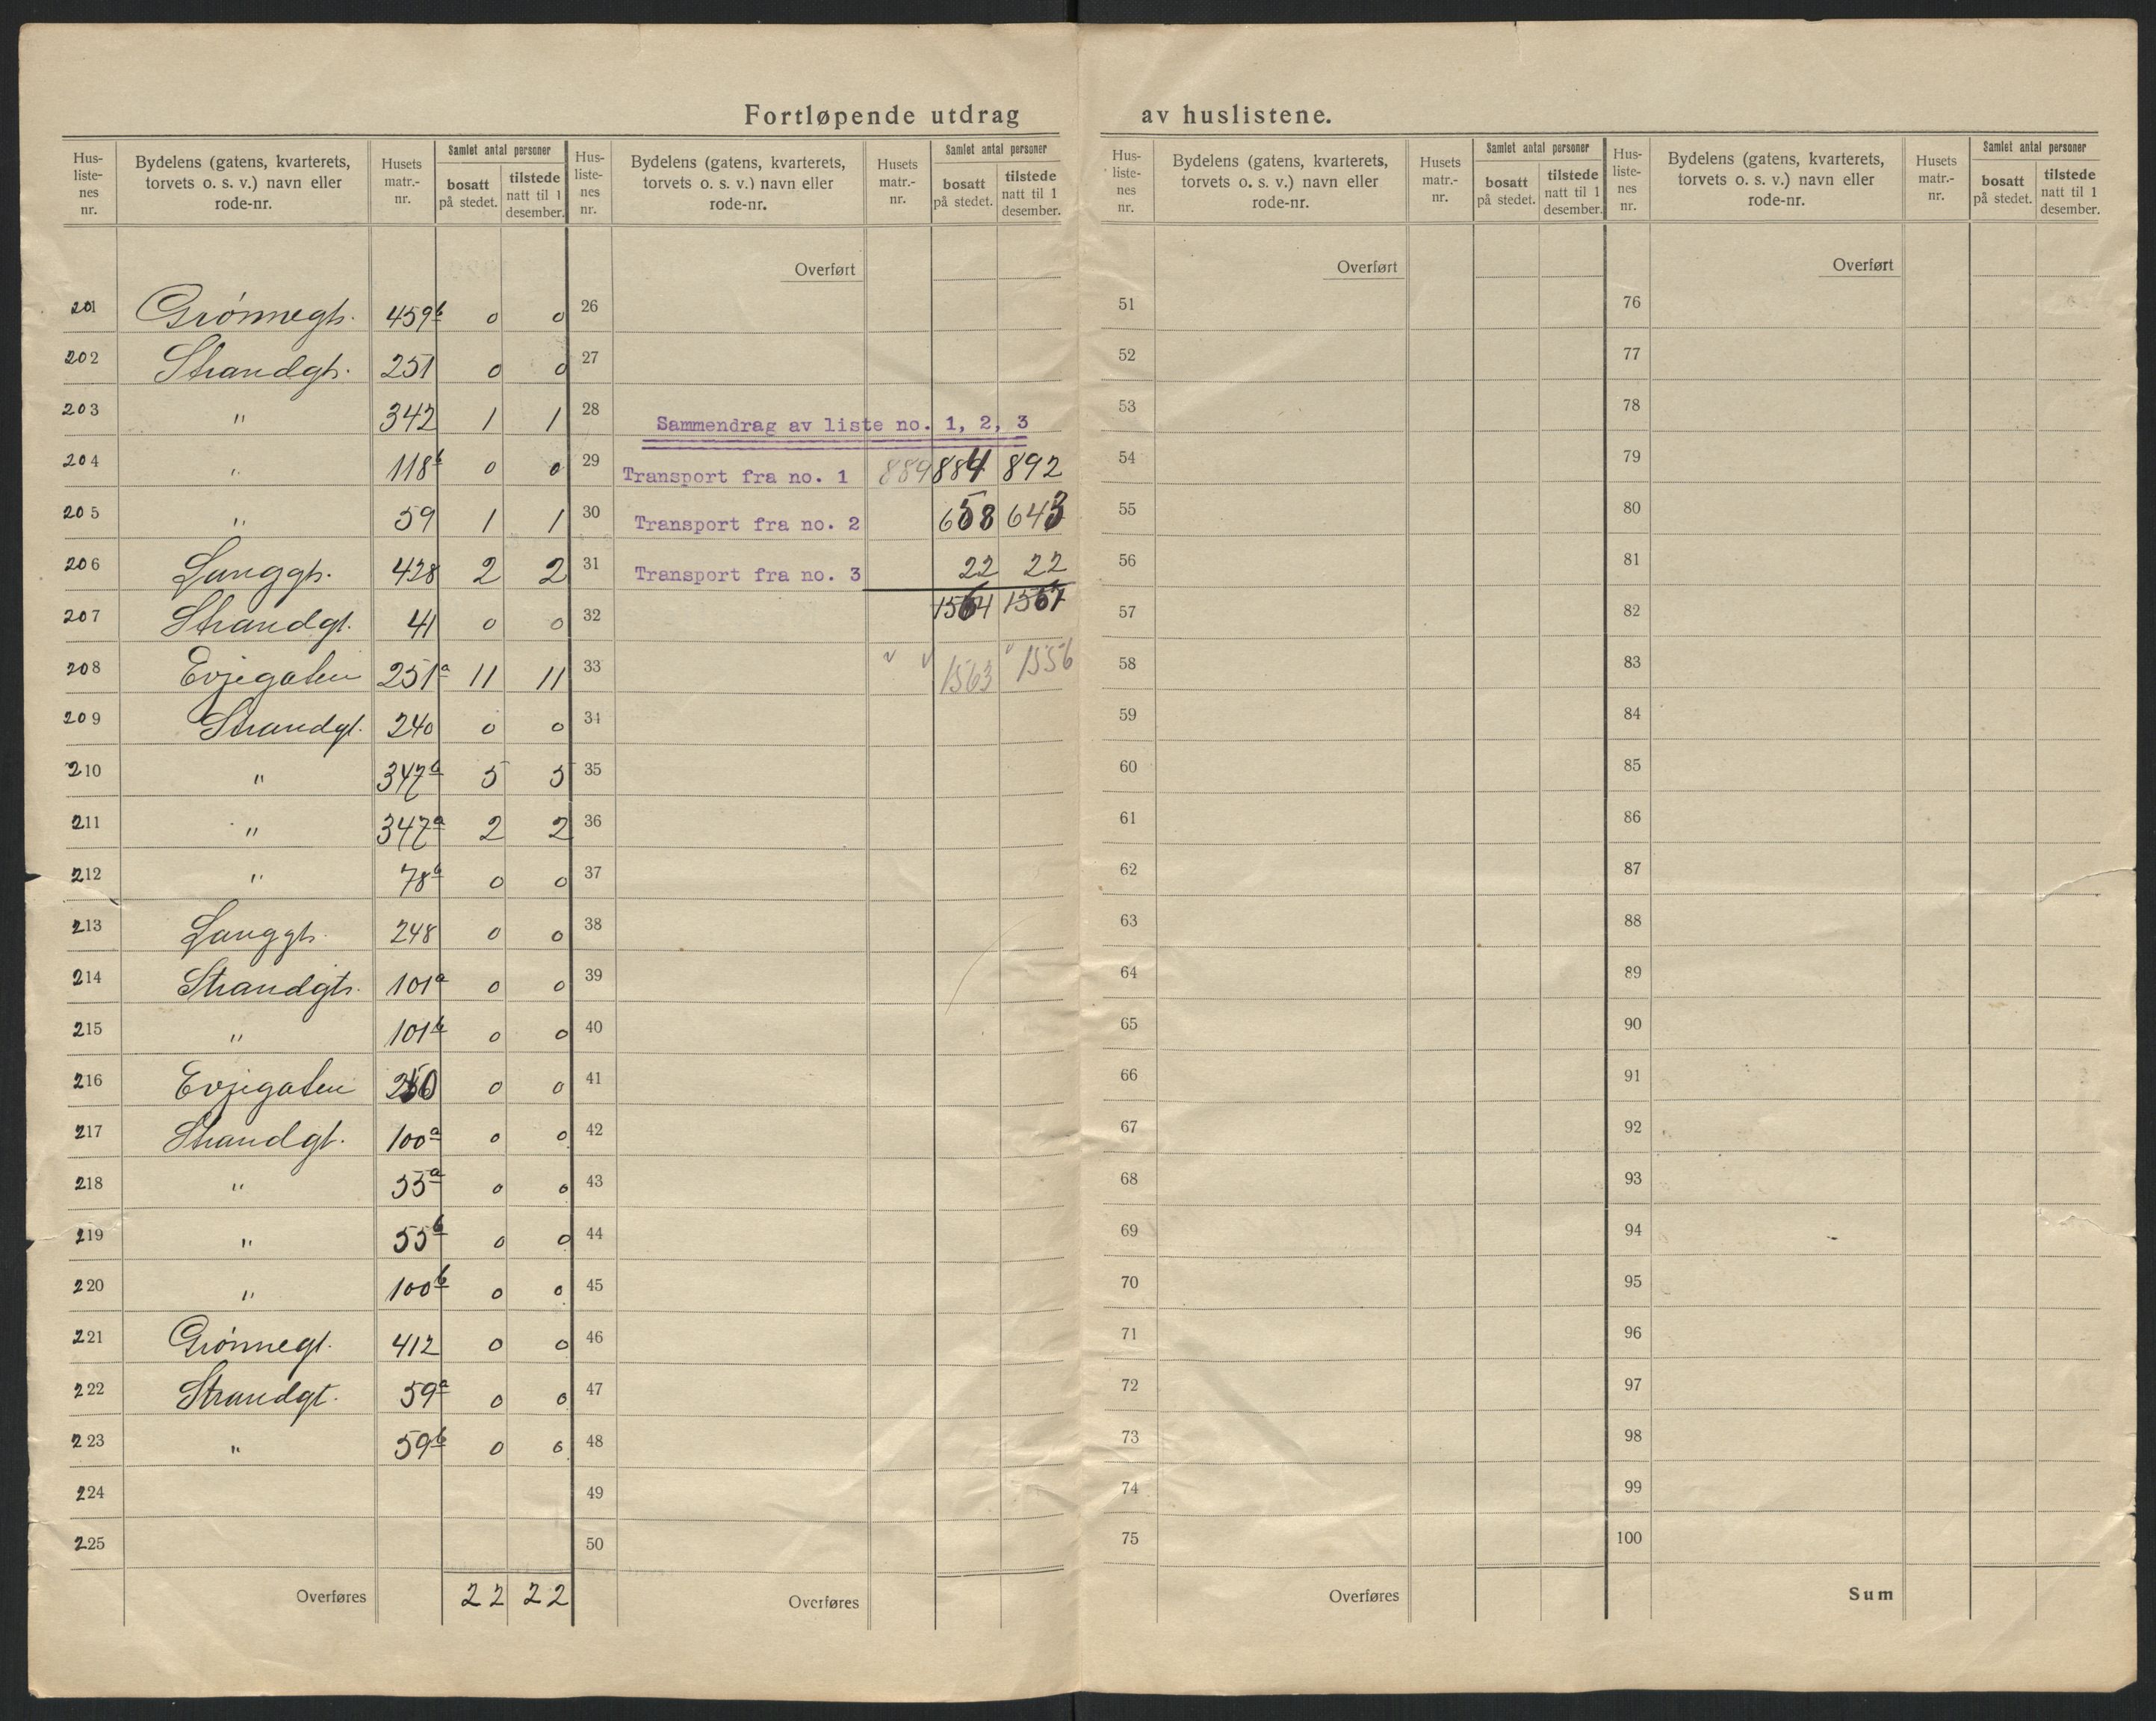 Fortløpende utdrag av huslistene.
Hus-liste-nes nr. | Bydelens (gatens, kvarterets, torvets o. s. v.) navn eller rode-nr. | Husets matr.-nr. | Samlet antal personer | bosatt på stedet. | tilstede natt til 1 desember.
201 Grønnegt. 459b 0 0
202 Strandgt. 251 0 0
203 " 342 1 1
204 " 118b 0 0
205 " 59 1 1
206 Langgt. 428 2 2
207 Strandgt. 41 0 0
208 Evjegaten 251a 11 11
209 Strandgt. 240 0 0
210 " 347a 5 5
211 " 347a 2 2
212 " 78a 0 0
213 Langgt. 248 0 0
214 Strandgt. 101a 0 0
215 " 101b 0 0
216 Evjegaten 250 0 0
217 Strandgt. 100a 0 0
218 " 55a 0 0
219 " 55b 0 0
220 " 100b 0 0
221 Grønnegt. 412 0 0
222 Strandgt. 59a 0 0
223 " 59b 0 0
224
225
Overføres 22 22
Hus-liste-nes nr. | Bydelens (gatens, kvarterets, torvets o. s. v.) navn eller rode-nr. | Husets matr.-nr. | Samlet antal personer | bosatt på stedet. | tilstede natt til 1 desember.
Overført
26
27
28 Sammendrag av liste no. 1, 2, 3
29 Transport fra no. 1 889 884 892
30 Transport fra no. 2 658 643
31 Transport fra no. 3 22 22
32 1564 1557
33 1563 1556
34
35
36
37
38
39
40
41
42
43
44
45
46
47
48
49
50
Overføres
Hus-liste-nes nr. | Bydelens (gatens, kvarterets, torvets o. s. v.) navn eller rode-nr. | Husets matr.-nr. | Samlet antal personer | bosatt på stedet. | tilstede natt til 1 desember.
Overført
51
52
53
54
55
56
57
58
59
60
61
62
63
64
65
66
67
68
69
70
71
72
73
74
75
Overføres
Hus-liste-nes nr. | Bydelens (gatens, kvarterets, torvets o. s. v.) navn eller rode-nr. | Husets matr.-nr. | Samlet antal personer | bosatt på stedet. | tilstede natt til 1 desember.
Overført
76
77
78
79
80
81
82
83
84
85
86
87
88
89
90
91
92
93
94
95
96
97
98
99
100
Sum